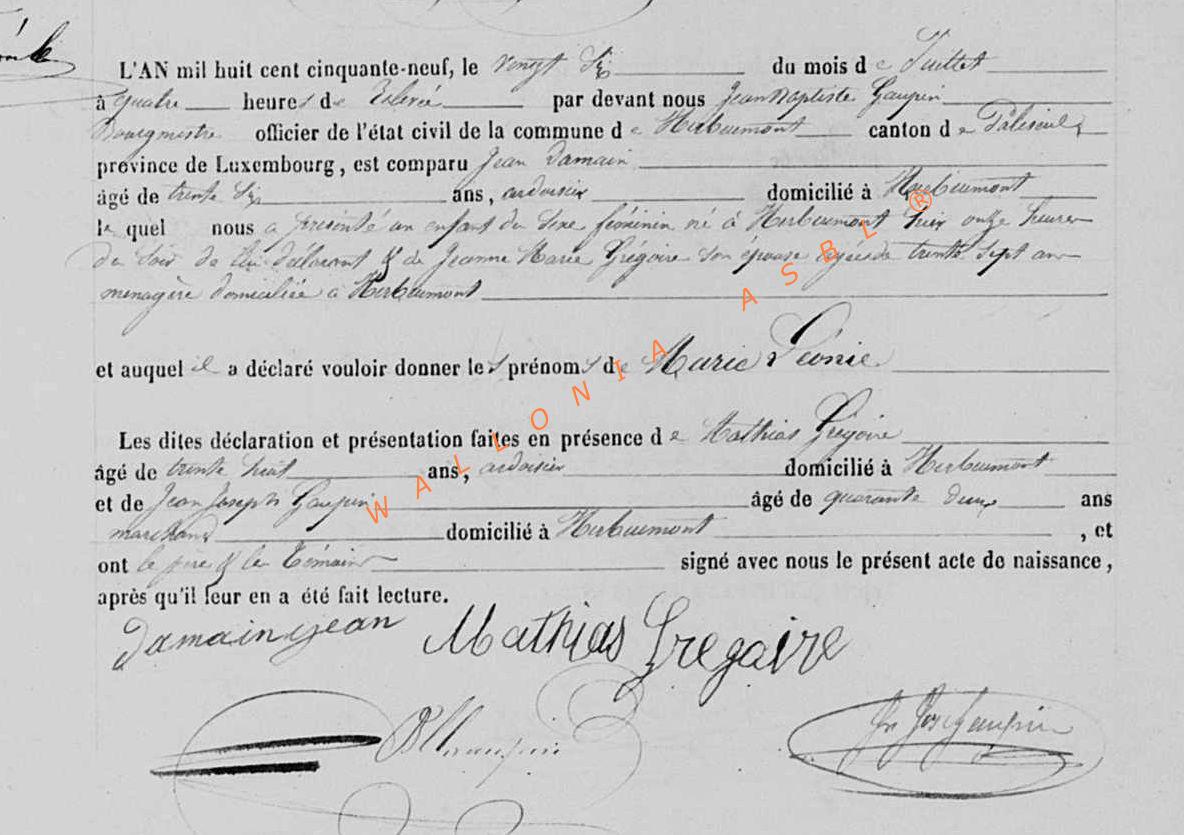 L'AN mil huit cent cinquante-neuf, le vingt six du mois de Juillet
à quatre heures de relevée par devant nous Jean Baptiste Gaupin
Bourgmestre officier de l'état civil de la commune de Herbeumont canton de Paliseul,
province de Luxembourg, est comparu Jean Damain
âgé de trente six ans, ardoisier domicilié à Herbeumont
lequel nous a présenté un enfant du sexe féminin né à Herbeumont hier onze heures
du soir de lui déclarant & de Jeanne Marie Grégoire son épouse âgée de trente sept ans
menagère domiciliée à Herbeumont
et auquel il a déclaré vouloir donner les prénoms de Marie Léonie
Les dites déclaration et présentation faites en présence de Mathias Grégoire
âgé de trente huit ans, ardoisier domicilié à Herbeumont
et de Jean Joseph Gaupin âgé de quarante deux ans
marchand domicilié à Herbeumont, et
ont le père & les témoins signé avec nous le présent acte de naissance,
après qu'il leur en a été fait lecture.
Damain jean Mathias Gregaire
Gaupin Jn Jos Gaupin
WALLONIA ASBL ®